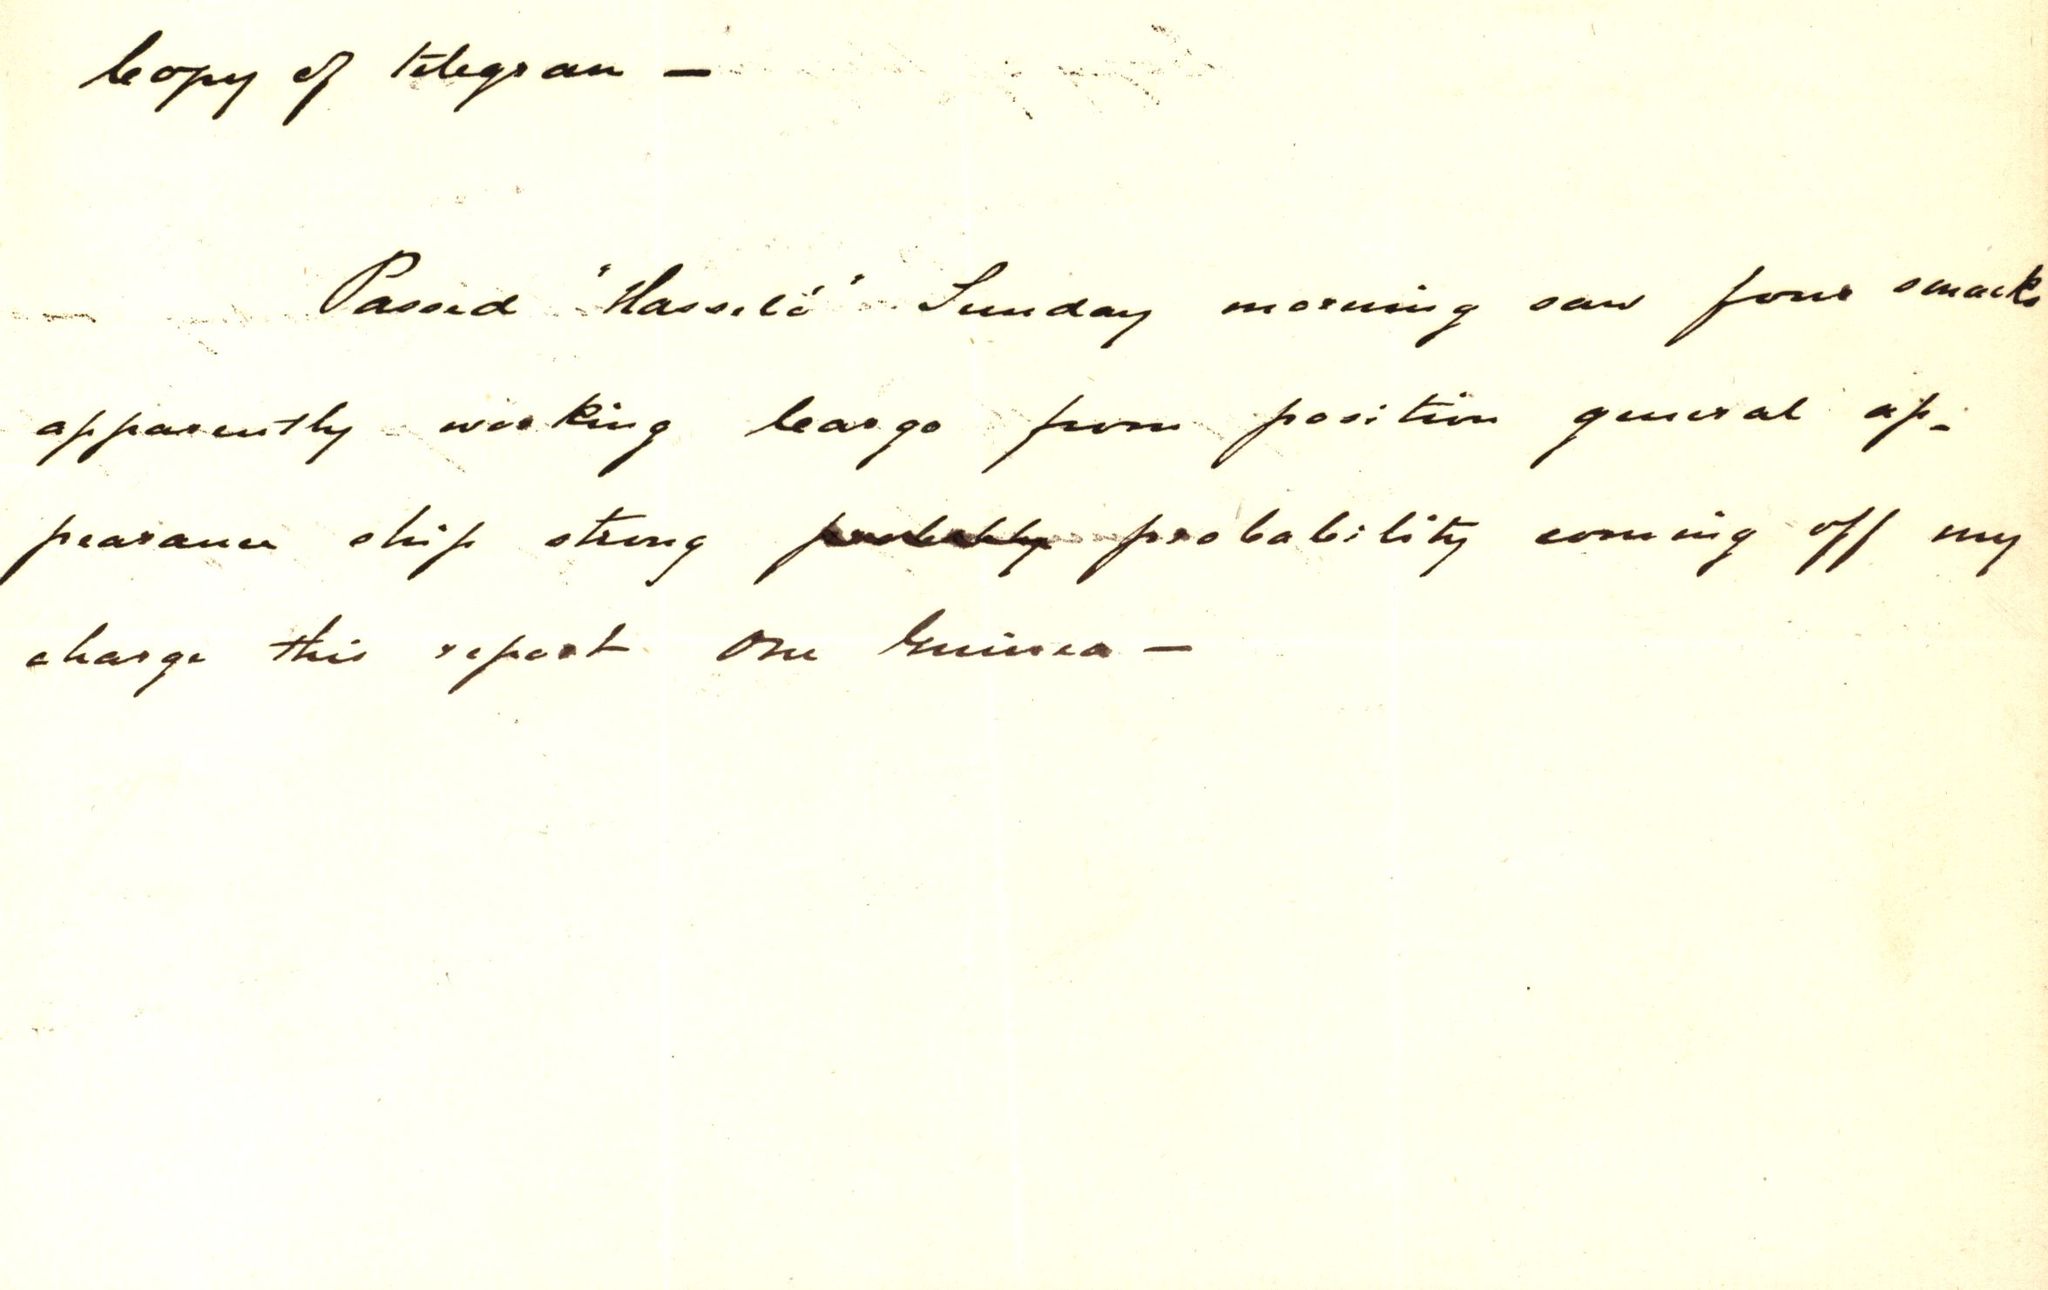 Copy of telegram —
Passed "Hasselö" Sunday morning saw four smacks
apparently working Cargo from position general ap-
pearance ship strong probably probability coming off my
charge this report One Guinea —